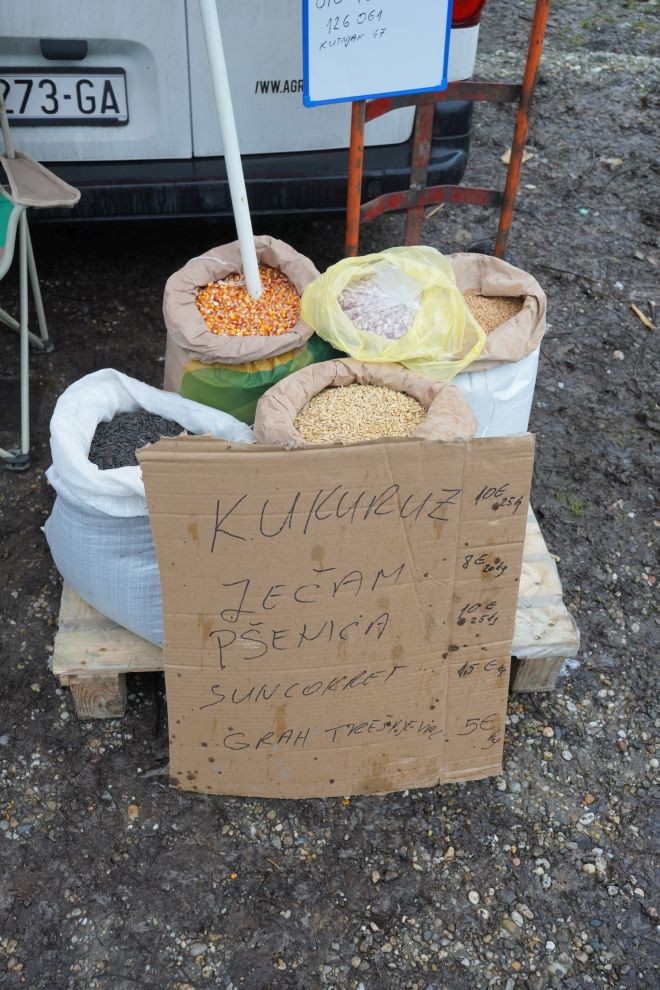 126 061
KUTNJAK 47
273-GA
/WW.AGR
KUKURUZ 10€ 25kg
JEČAM 8€ 20kg
PŠENICA 10€ 25kg
SUNCOKRET 15€
GRAH TREŠNJEVAC 5€ kg